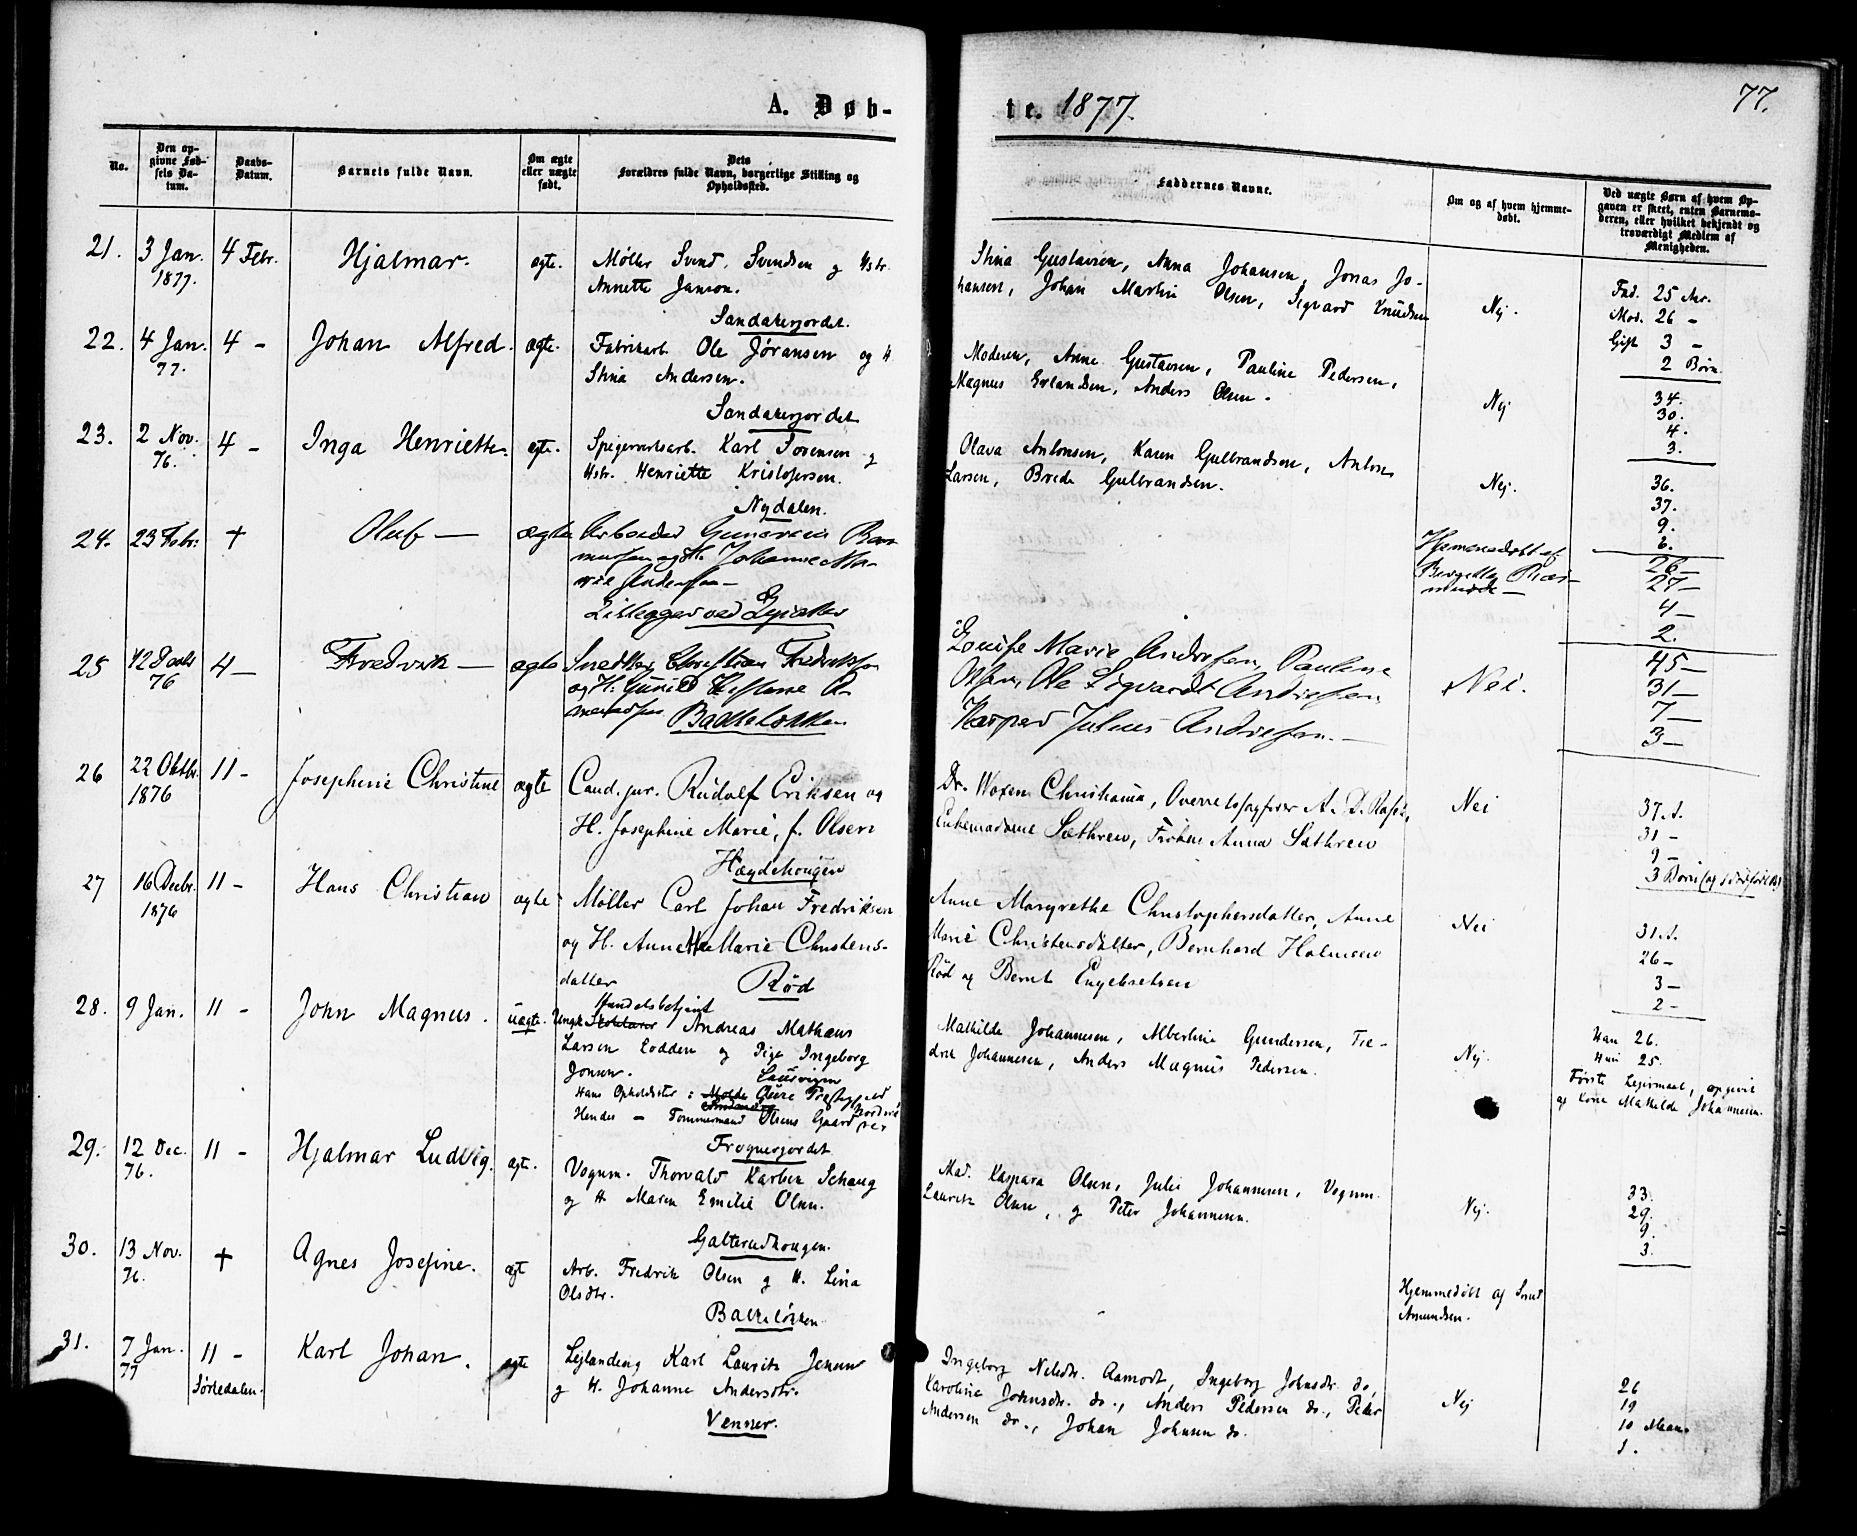 A. Døb-
te. 1877.
77.
No.
Den op-
givne Fød-
sels Da-
tum.
Daabs-
Datum.
Barnets fulde Navn.
Om ægte
eller uægte
født.
Dets
Forældres fulde Navn, borgerlige Stilling og
Opholdssted.
Faddernes Navne.
Om og af hvem hjemme-
døbt.
Ved uægte Børn af hvem Op-
gaven er skeet, enten Barnemo-
deren, eller hvilket bekjendt og
troværdigt Medlem af
Menigheden.
21. 3 Jan. 4 Febr. Hjalmar. ægte. Møller Svend Svendsen og Hstr.
1877. Annette Janson.
Sandakerjordet.
Stina Gustavsen, Anna Johansen, Jonas Jo-
hansen, Johan Martin Olsen, Sigvard Knudsen
Nej.
Fad. 25 Aar.
Mod. 26 -
Gift 3 -
2 Børn.
22. 4 Jan. 4 - Johan Alfred. ægte. Fabrikarb. Ole Jøransen og H.
77. Stina Andersen.
Sandakerjordet
Moderen, Anne Gustavsen, Pauline Pedersen,
Magnus Erlandsen, Anders Olsen.
Nej
34.
30.
4.
3.
23. 2 Nov. 4 - Inga Henriette. ægte. Spigerverksarb. Karl Sørensen og
76. Hstr. Henriette Kristofersen.
Nydalen.
Olava Antonsen, Karen Gulbrandsen, Anton
Larsen, Brede Gulbrandsen.
Nej.
36.
37.
9.
6.
24. 23 Febr. + Oluf — ægte Arbeider
og H. Johanne Ma-
rie
ved
Hjemmedøbt af
26 —
27 —
4 —
2.
25 12 4 — Fredrik — ægte Snedker Christian Fredriksen
76 og H. Gunild
Bakkeløkken
Louise Marie Andresen, Pauline
Olsen, Ole Sigvardt Andresen
Kasper Julius Andresen. —
Nei.
45 —
31 —
7 —
3 —
26 22 Oktbr. 11 - Josephine Christine ægte Cand. jur. Rudolf Eriksen og
1876 H. Josephine Marie, f. Olsen
Høydehougen
Dr. Christiania, Overretssagfører A. D.
Enkemadame Sæthren, Frøken Anna Sæthren
Nei
37 A.
31 -
9 -
3 Børn
27 16 Decbr. 11 - Hans Christian ægte Møller Carl Johan Fredriksen
1876 og H. Annette Marie Christens-
datter
Rød
Anne Margrethe Christophersdatter, Anne
Marie Christensdatter, Bernhard Halvorsen
Rød og Bernt Engebretsen
Nei
31 A.
26 -
3 -
2 -
28. 9 Jan. 11 - John Magnus. uægte. Handelsbetjent
Ungk. Andreas Mathæus
Larsen Lodden og Pige Ingeborg
Jonsen. Laurvigen
Hans Opholdssted:
Hendes — Tømmermand Olsens Gaard
Frognerjordet
Mathilde Johannesen, Albertine Gundersen, Fre-
drik Johannesen, Anders Magnus Pedersen.
Nej.
Han 26.
Hun 25.
Første Leiermaal, opgivet
af Kone Mathilde Johannesen.
29. 12 Dec. 11 - Hjalmar Ludvig. ægte. Vognm. Thorvald Karsten Schaug
76. og H. Maren Emilie Olsen.
Galterudhougen.
Mad. Kaspara Olsen, Julie Johannesen, Vognm.
Lauritz Olsen, og Peter Johannesen.
Nej.
33.
29.
9.
3.
30. 13 Nov. + Agnes Josefine. ægte Arb. Fredrik Olsen og H. Lina
76. Olsdtr.
Bakkeløkken
Hjemmedøbt af
Amundsen.
31. 7 Jan. 11 - Karl Johan. ægte Leilænding Karl Lauritz Jensen
77 Sørkedalen. og H. Johanne Andersdtr.
Venner.
Ingeborg Nilsdtr. Aamodt, Ingeborg Johnsdr. do,
Karoline Johnsdr. do., Anders Pedersen do., Peder
Andersen do., Johan Johnsen do.
Nej
26
19
10 Maan.
1.